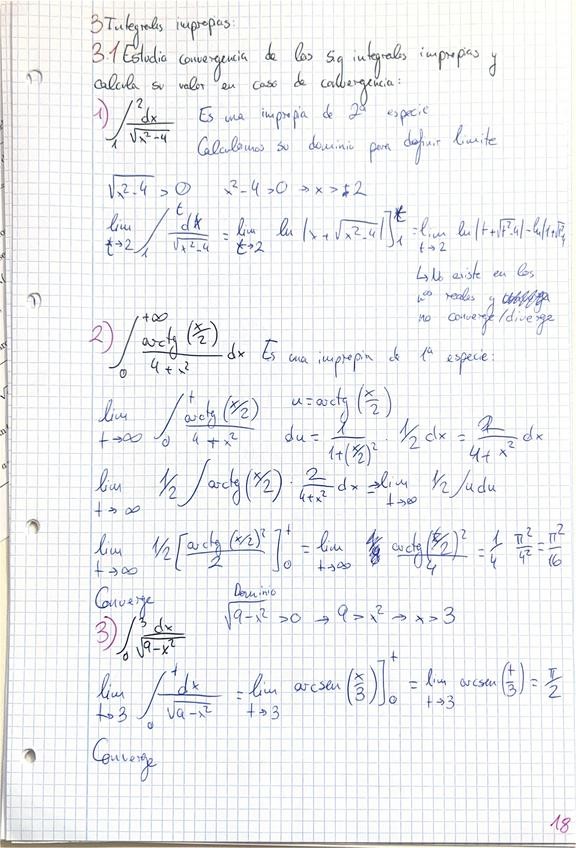 3 Integrales impropias:
3.1 Estudia convergencia de las sig integrales impropias y
calcula su valor en caso de convergencia:
1) ∫₁² dx/√(x²-4) Es una impropia de 2ª especie
Calculamos su dominio para definir limite
√(x²-4) > 0 x²-4>0 → x > ±2
lim t→2 ∫₁ᵗ dx/√(x²-4) = lim t→2 ln |x+√(x²-4)|]₁ᵗ = lim t→2 ln|t+√(t²-4)|-ln|1+√
↳ No existe en los
nos reales y
no converge/diverge
2) ∫₀^{+∞} arctg(x/2)/(4+x²) dx Es una impropia de 1ª especie:
lim t→∞ ∫₀ᵗ arctg(x/2)/(4+x²) u=arctg(x/2)
du = 1/(1+(x/2)²) · 1/2 dx = 2/(4+x²) dx
lim t→∞ 1/2 ∫ arctg(x/2) · 2/(4+x²) dx ⇒ lim t→∞ 1/2 ∫u du
lim t→∞ 1/2 [arctg(x/2)²/2]₀ᵗ = lim t→∞ arctg(t/2)²/4 = 1/4 π²/4² = π²/16
Converge
Dominio
3) ∫₀³ dx/√(9-x²) √(9-x²) > 0 → 9 > x² → x > 3
lim t→3 ∫₀ᵗ dx/√(9-x²) = lim t→3 arcsen(x/3)]₀ᵗ = lim t→3 arcsen(t/3) = π/2
Converge
18